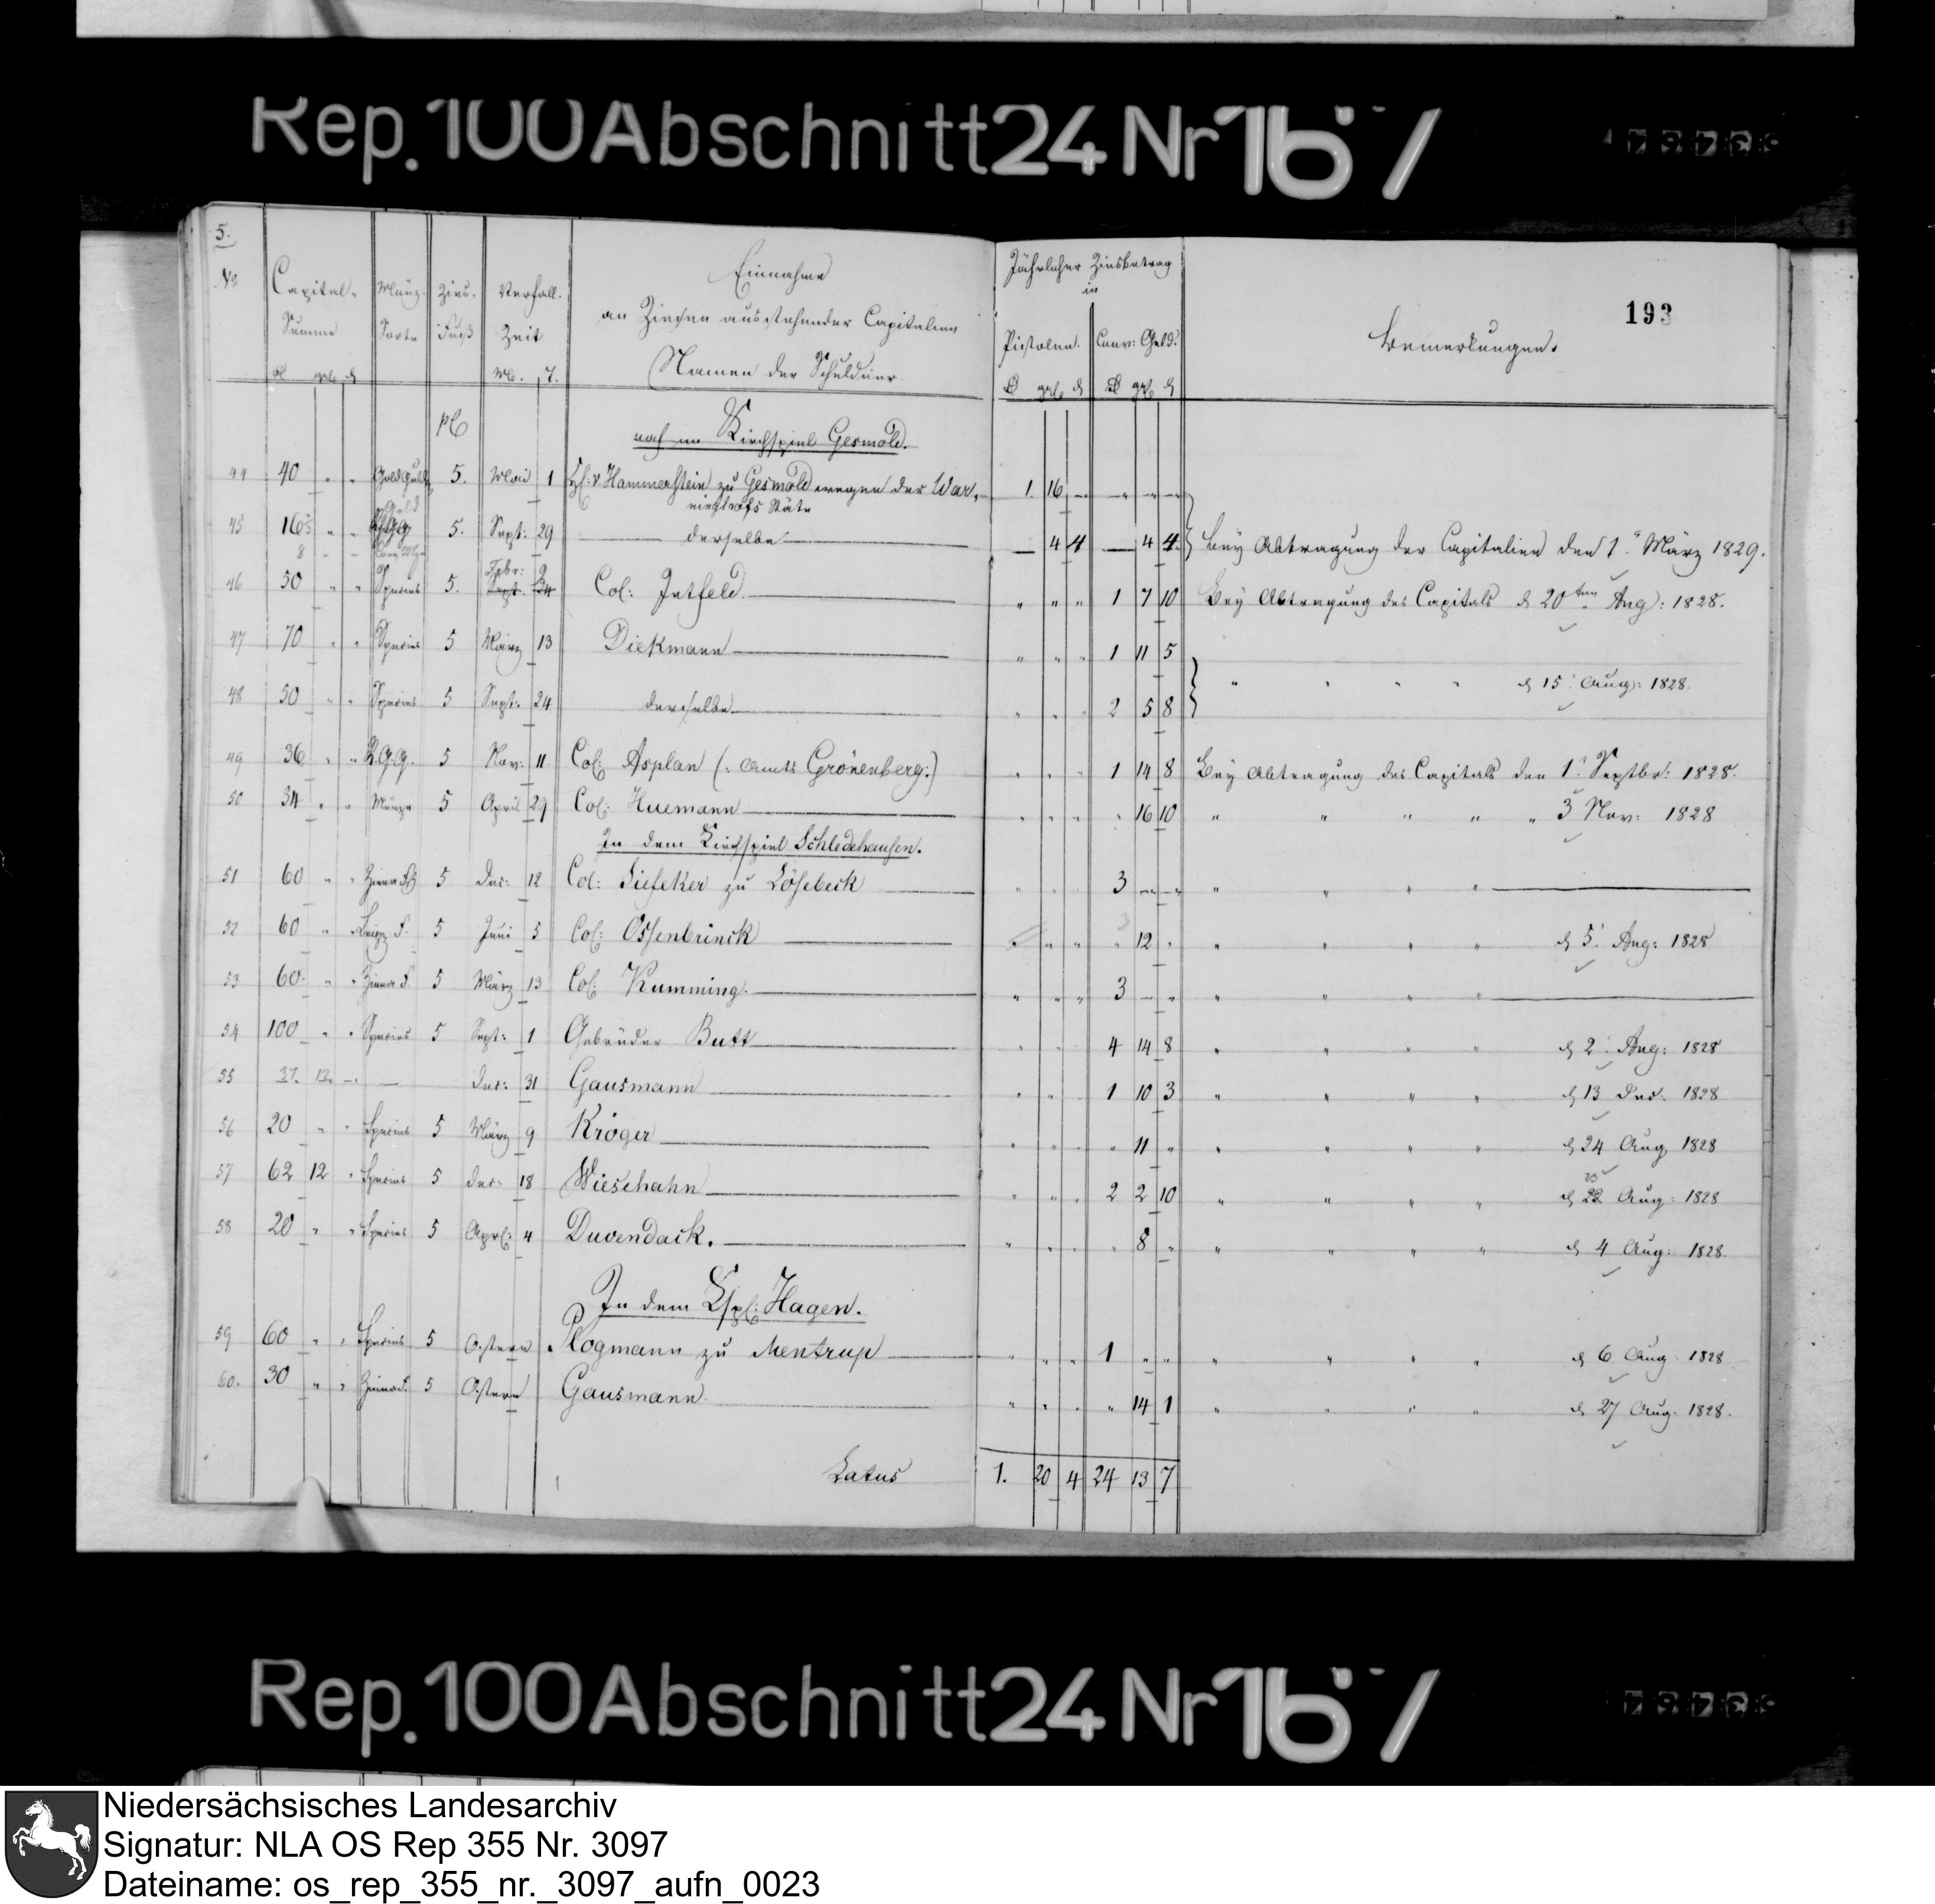 Rep. 100 Abschnitt 24 Nr 167
5.
193
No Capital- Münz- Zins- Verfall- Einnahme Jährlicher Zinsbetrag
in
Summe Sorte Fuß Zeit an Zinsen ausstehender Capitalien Pistolen. Conv: Geld. Bemerkungen.
M. T. Namen der Schuldner.
pC
noch im Kirchspiel Gesmold.
44 40 " " Goldguld 5. Mai 1 H: v. Hammerstein zu Gesmold wegen der War- 1. 16
Stäte
45 5. Sept: 29 derselbe — 4 4 — 4 4 Bey Abtragung der Capitalien den 1. März 1829.
Febr: 9
46 50 " " Species 5. Sept. Col: Jntfeld. " " " 1 7 10 Bey Abtragung des Capitals d 20ten Aug: 1828.
47 70 " " Species 5 März 13 Diekmann " " " 1 11 5
" " " " d 15. Aug: 1828.
48 50 " " Species 5 Sept: 24 derselbe " " " 2 5 8
49 36 " " 5 Nov: 11. Col: Asplan (: Amts Grönenberg:) " " " 1 14 8 Bey Abtragung des Capitals den 1. Septbr: 1828.
50 34 " " Münze 5 April 29 Col: Huemann " " " " 16 10 " " " " " 3 Nov: 1828
In dem Kirchspiel Schledehausen.
51 60 " " 5 Dec: 12 Col: Siefeker zu Lösebeck " " " 3 " " " " " "
52 60 " " 5 Juni 5 Col: Ossenbrinck " " " " 12 " " " " " d 5. Aug: 1828
53 60. " " 5 März 13 Col: Kumming. " " " 3 — " " " " "
54 100 " " Species 5 Sept: 1 Gebrüder Butt " " " 4 14 8 " " " " d 2. Aug: 1828
55 37. 13. — — Dec: 31 Gausmann " " " 1 10 3 " " " " d 13 Dec. 1828
56 20 " " Species 5 März 9 Kröger " " " " 11 " " " " " d 24 Aug. 1828
57 62 12 " Species 5 Dec: 18 Wiesehahn " " " 2 2 10 " " " " d 22 Aug: 1828
58 20 " " Species 5 Aprl: 4 Duvendack. " " " " 8 " " " " " d 4 Aug: 1828.
In dem Kspl: Hagen.
59 60 " " Species 5 Ostern Plogmann zu Mentrup " " " 1 " " " " " " d 6 Aug. 1828
60. 30 " " 5 Ostern Gausmann. " " " " 14 1 " " " " d 27 Aug. 1828.
Latus 1. 20 4 24 13 7
Rep. 100 Abschnitt 24 Nr 167
Niedersächsisches Landesarchiv
Signatur: NLA OS Rep 355 Nr. 3097
Dateiname: os_rep_355_nr._3097_aufn_0023